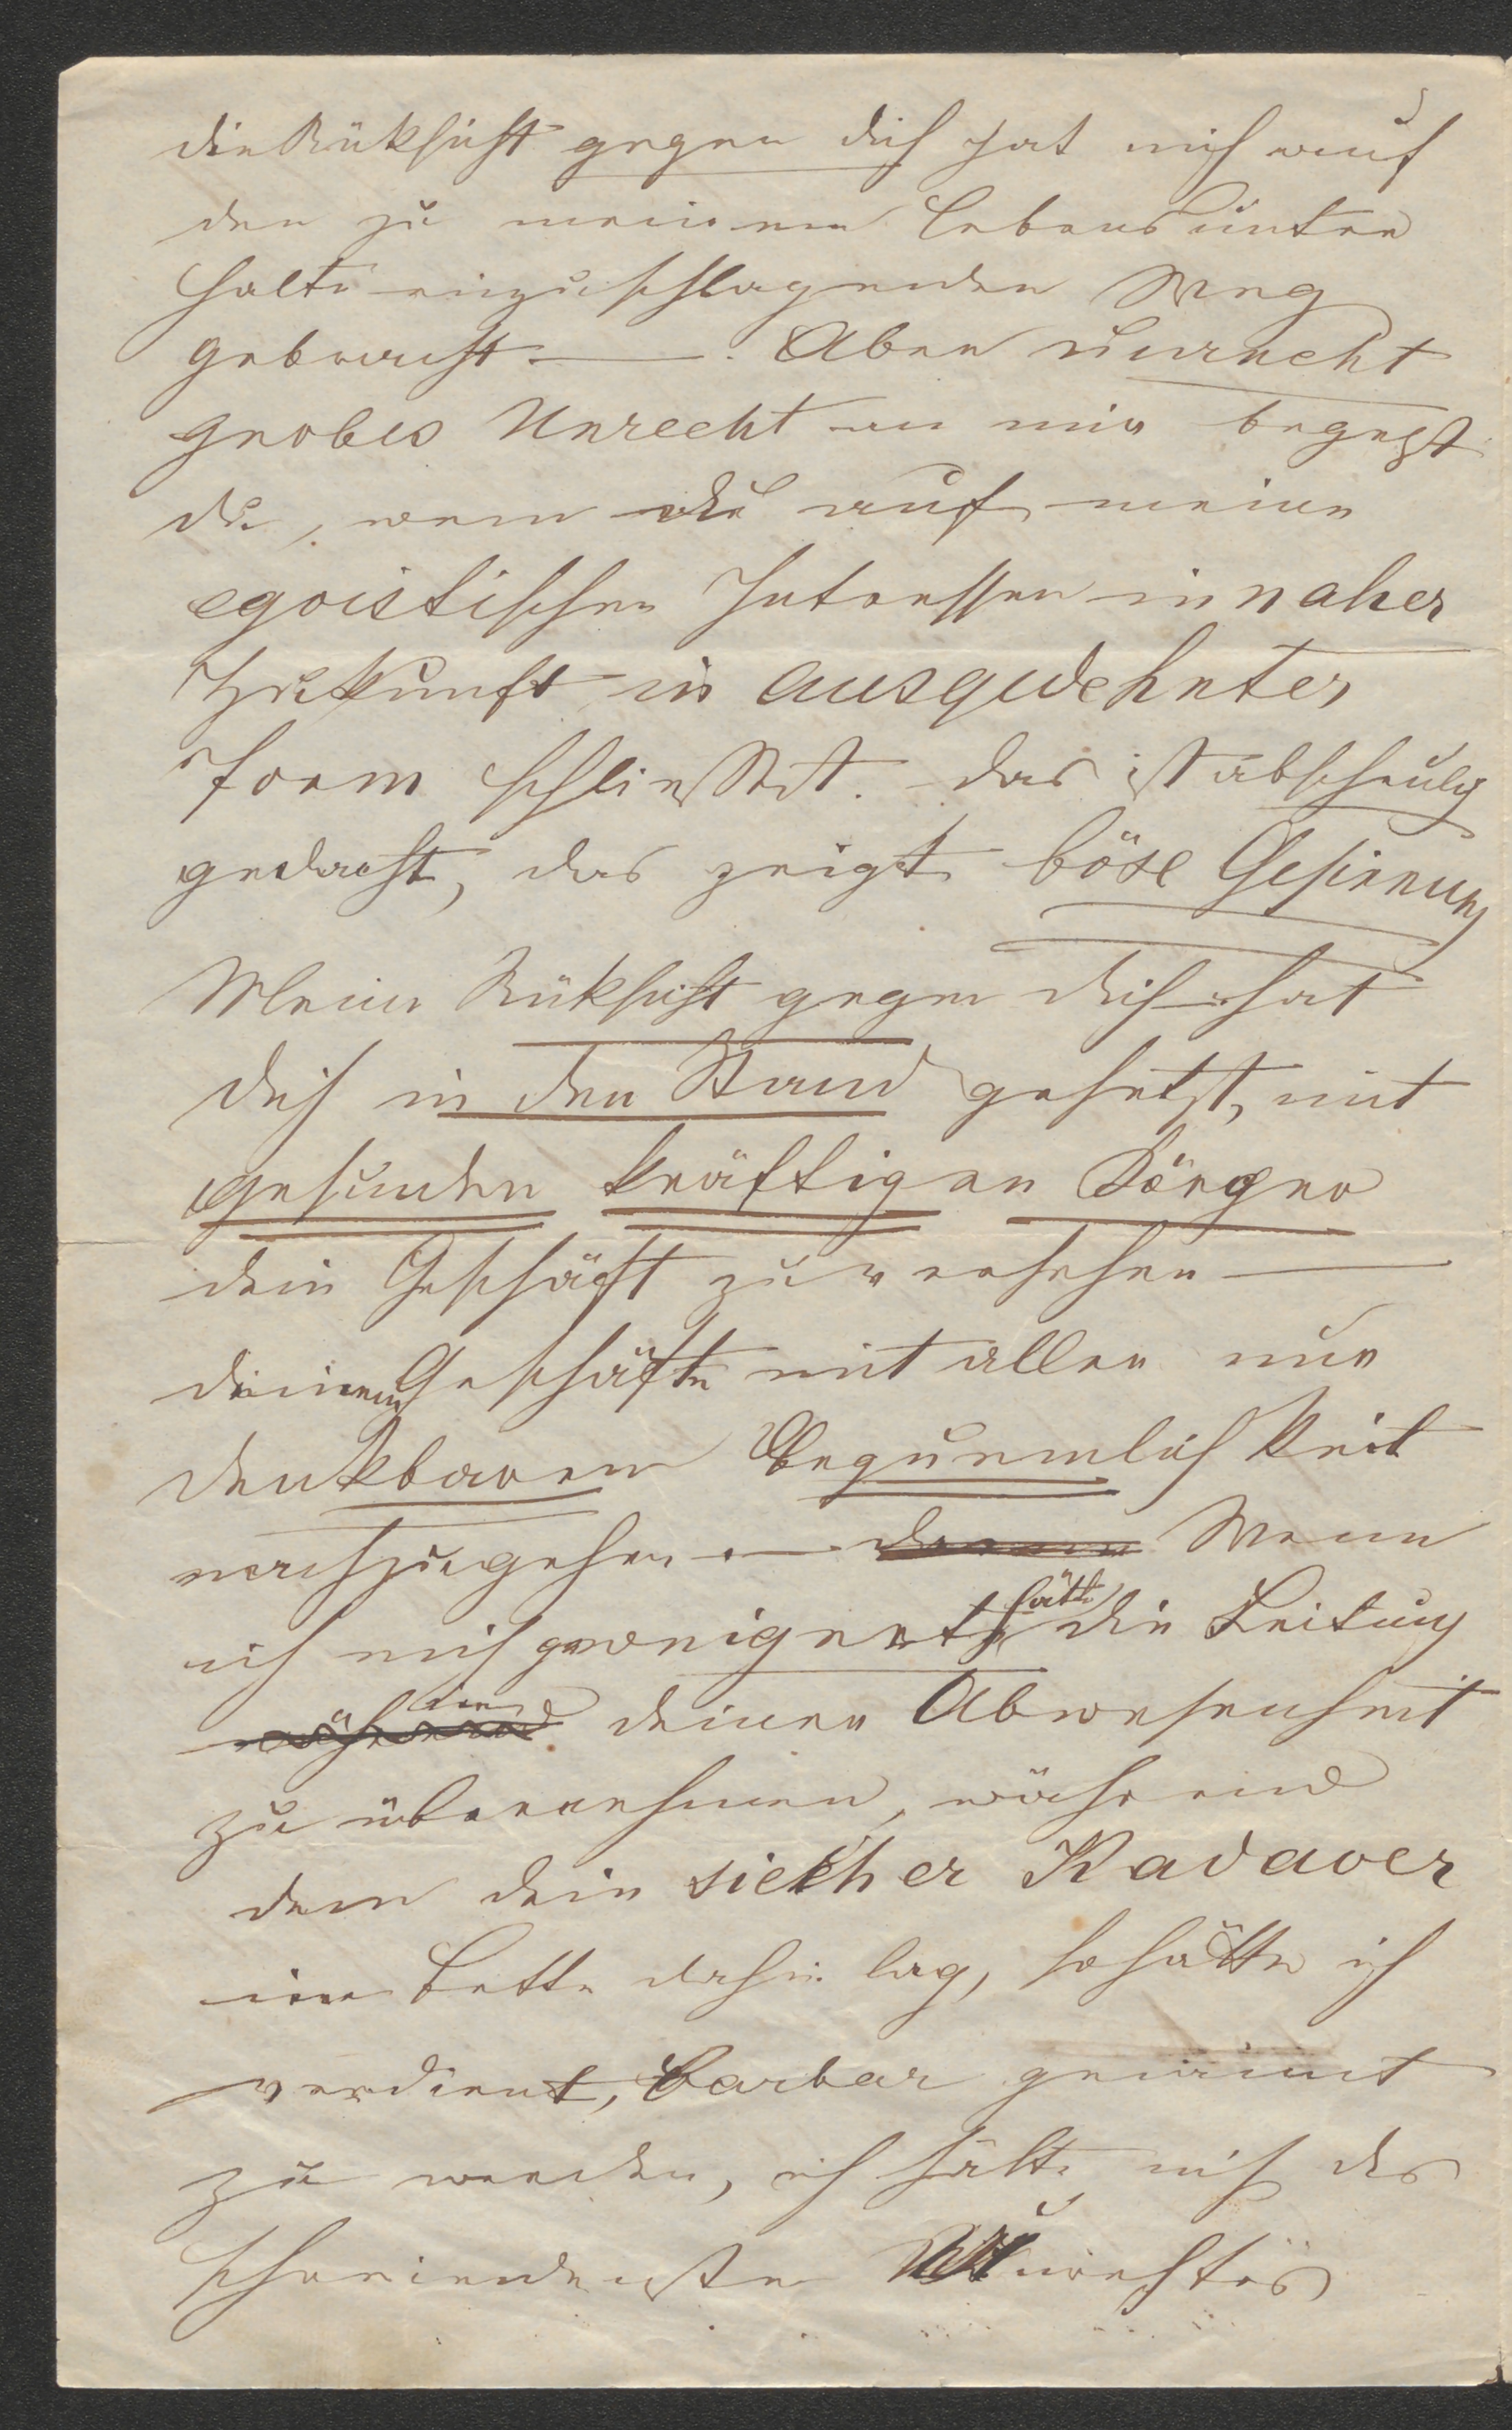 die Rüksicht gegen dich hat mich auf
den zu meinem Lebensunter
halte einzuschlagenden Weg
gebracht. — . Aber unrecht
grobes Unrecht an mir begehst
du, wenn du auf meine
egoistischen Intressen in naher
Zukunft in ausgedehnter
Form schließest. das ist abscheulig
gedacht, das zeigt böse Gesinnung
Meine Rüksicht gegen dich hat
dich in den Stand gesetzt, mit
gesunden kräftigen Körper
dein Geschäft zu versehen —
deinem Geschäfte mit aller nur
denkbaren Bequemlichkeit
nachzugehen. — Wenn
ich mich geweigert hätte die Leitung
in deiner Abwesenheit
zu übernehmen, während
dem dein siecher Kadaver
im Bette dahin lag, so hätte ich
verdient, Barbar genannt
zu werden, ich hätte mich des
schreiendesten Unrechtes